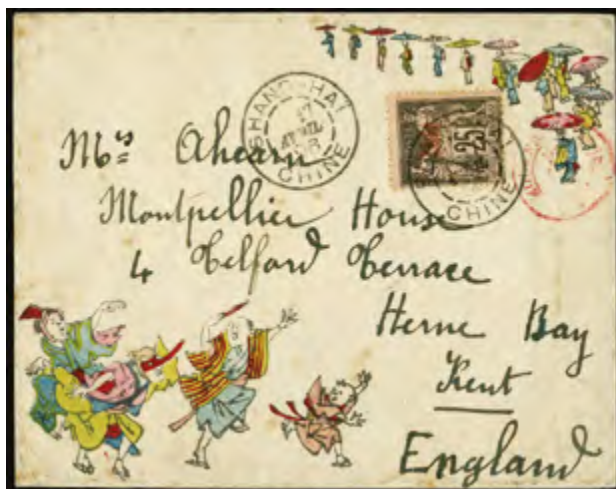 SHANG-HAI
CHINE
25
CHINE
Mrs Ahearn
Montpellier House
4 Telford Terrace
Herne Bay
Kent
England